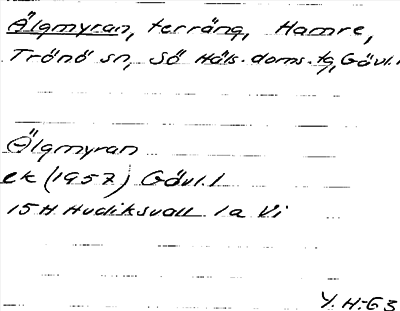 Älgmyran, terräng, Hamre,
Trönö sn, Sö Häls. doms. tg, Gävl. l
Älgmyran
ek (1957) Gävl. l
15H Hudiksvall 1a Vi
Y. H-63